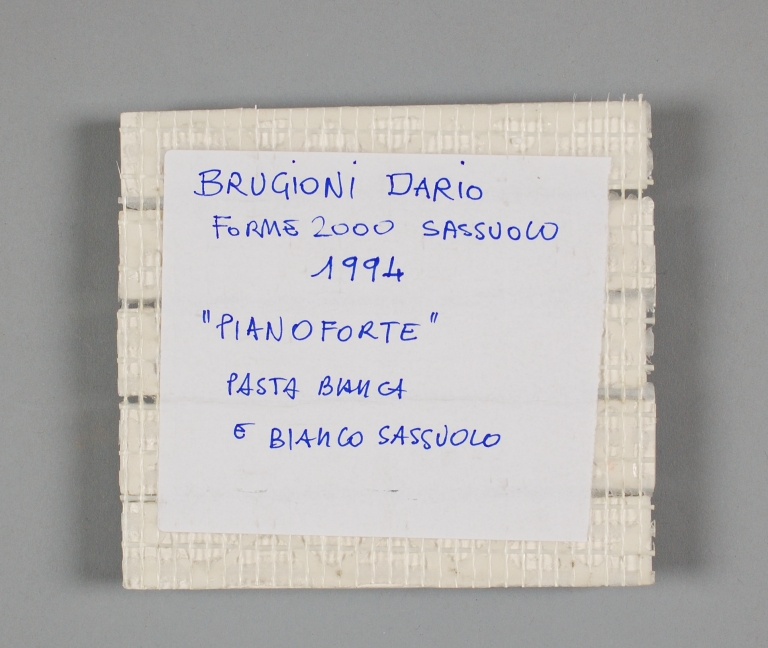 BRUGIONI DARIO
FORME 2000 SASSUOLO
1994
"PIANOFORTE"
PASTA BIANCA
E BIANCO SASSUOLO